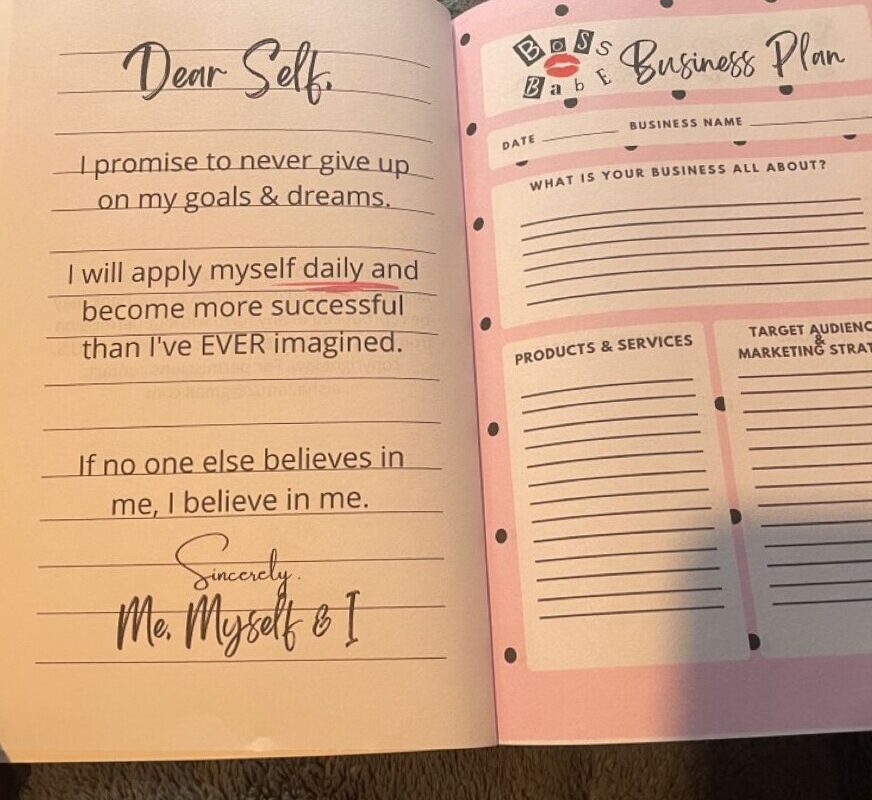 Dear Self,
I promise to never give up
on my goals & dreams.
I will apply myself daily and
become more successful
than I've EVER imagined.
If no one else believes in
me, I believe in me.
Sincerely,
Me, Myself & I
BOSS
BabE
Business Plan
DATE BUSINESS NAME
WHAT IS YOUR BUSINESS ALL ABOUT?
PRODUCTS & SERVICES
TARGET AUDIENC
&
MARKETING STRAT